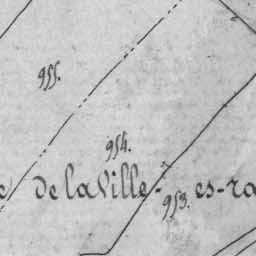 955.
954.
e de la Ville-es-ra
953.